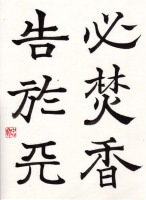 必焚香
告於天